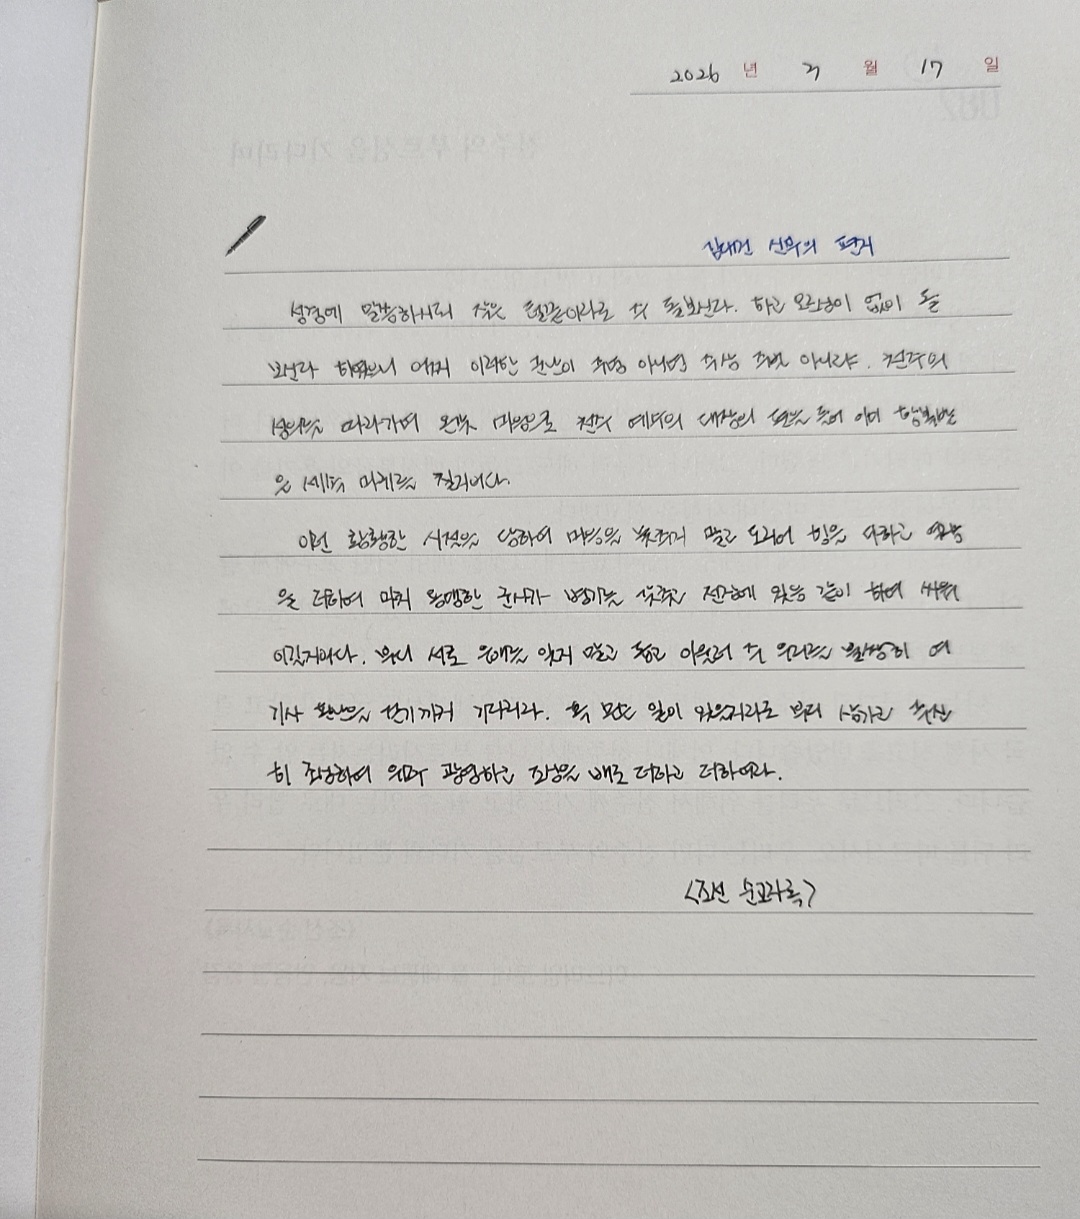 2026 년 3 월 17 일
김대건 신부의 편지
성경에 말씀하시되 작은 털끝이라로 주 돌보신다. 하고 모르심이 없이 돌
보신다 하였으니 어찌 이러한 군난이 주명 아니면 주상 주벌 아니랴. 천주의
성의를 따라가며 온갖 마음으로 천주 예수의 대장의 편을 들어 이미 항복받
은 세속 마귀를 칠지어다.
이런 황황한 시절을 당하여 마음을 늦추지 말고 도리어 힘을 다하고 역량
을 더하여 마치 용맹한 군사가 병기를 갖추고 전장에 있음 같이 하여 싸워
이길지어다. 부디 서로 우애를 잊지 말고 돕고 아울러 주 우리를 불쌍히 여
기사 환난을 걷기까지 기다리라. 혹 무슨 일이 있을지라도 부디 삼가고 극진
히 조심하여 위주 광영하고 조심을 배로 더하고 더하여라.
<조선 순교자록>